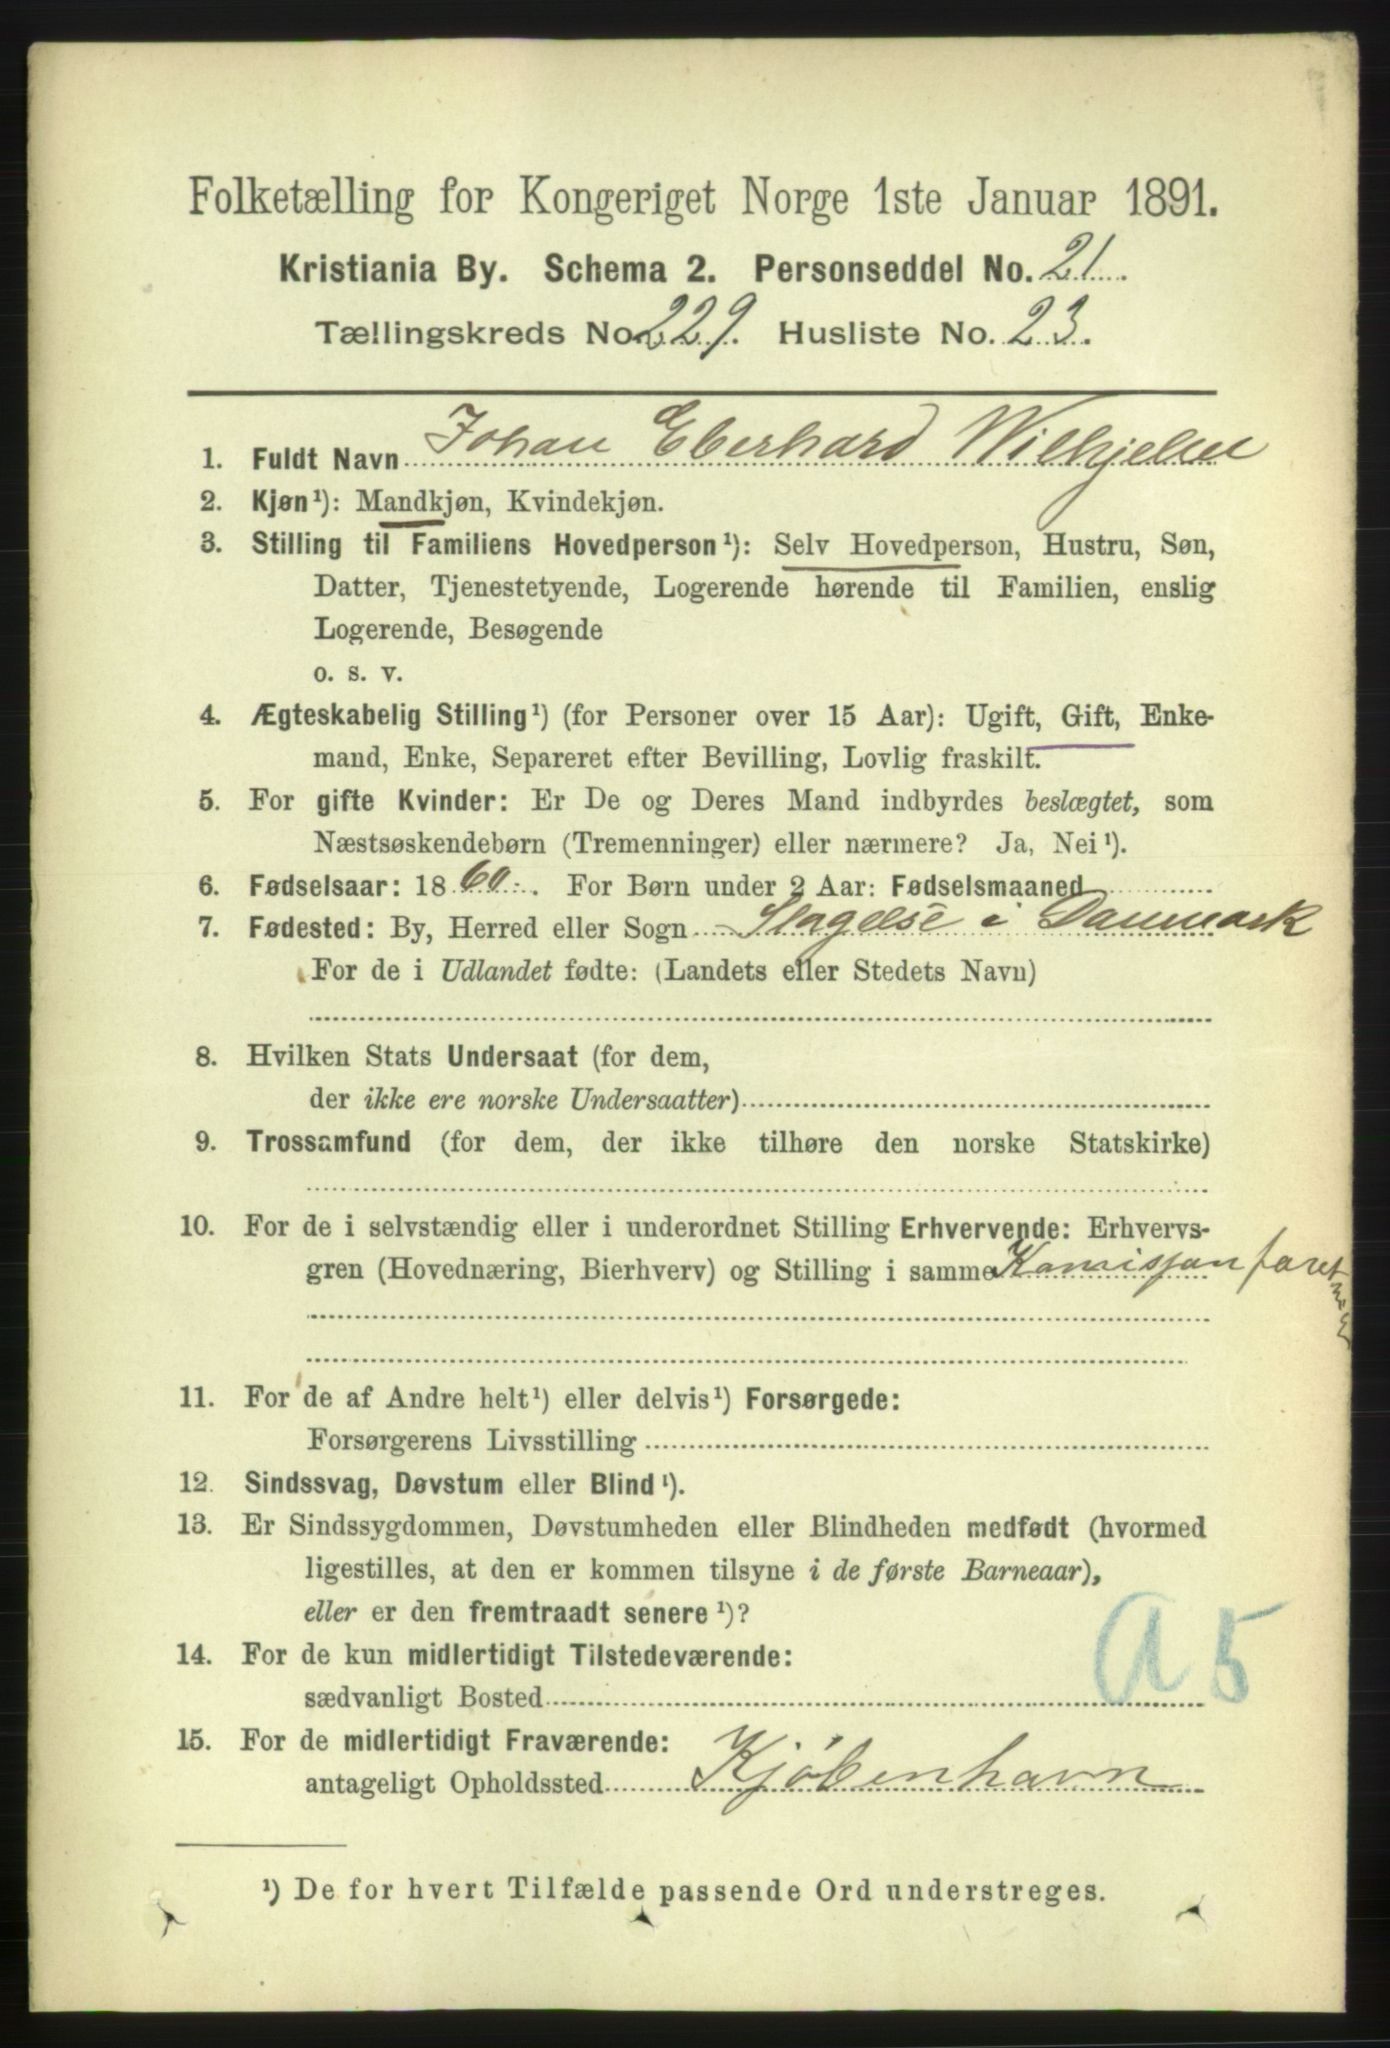 Folketælling for Kongeriget Norge 1ste Januar 1891.
Kristiania By. Schema 2. Personseddel No. 21.
Tællingskreds No. 229. Husliste No. 23.
1. Fuldt Navn Johan Eberhard Wilhjelm
2. Kjøn¹): Mandkjøn, Kvindekjøn.
3. Stilling til Familiens Hovedperson¹): Selv Hovedperson, Hustru, Søn,
Datter, Tjenestetyende, Logerende hørende til Familien, enslig
Logerende, Besøgende
o. s. v.
4. Ægteskabelig Stilling¹) (for Personer over 15 Aar): Ugift, Gift, Enke-
mand, Enke, Separeret efter Bevilling, Lovlig fraskilt.
5. For gifte Kvinder: Er De og Deres Mand indbyrdes beslægtet, som
Næstsøskendebørn (Tremenninger) eller nærmere? Ja, Nei¹).
6. Fødselsaar: 1860. For Børn under 2 Aar: Fødselsmaaned
7. Fødested: By, Herred eller Sogn Slagelse i Danmark
For de i Udlandet fødte: (Landets eller Stedets Navn)
8. Hvilken Stats Undersaat (for dem,
der ikke ere norske Undersaatter)
9. Trossamfund (for dem, der ikke tilhøre den norske Statskirke)
10. For de i selvstændig eller i underordnet Stilling Erhvervende: Erhvervs-
gren (Hovednæring, Bierhverv) og Stilling i samme
11. For de af Andre helt¹) eller delvis¹) Forsørgede:
Forsørgerens Livsstilling
12. Sindssvag, Døvstum eller Blind¹).
13. Er Sindssygdommen, Døvstumheden eller Blindheden medfødt (hvormed
ligestilles, at den er kommen tilsyne i de første Barneaar),
eller er den fremtraadt senere¹)?
14. For de kun midlertidigt Tilstedeværende:
sædvanligt Bosted
A 5
15. For de midlertidigt Fraværende:
antageligt Opholdssted Kjøbenhavn
¹) De for hvert Tilfælde passende Ord understreges.